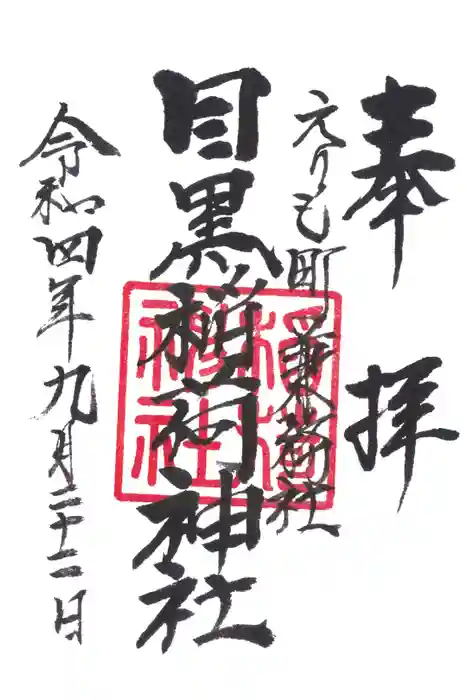 奉拝
えりも町 兼務社
目黒稲荷神社
令和四年九月二十二日